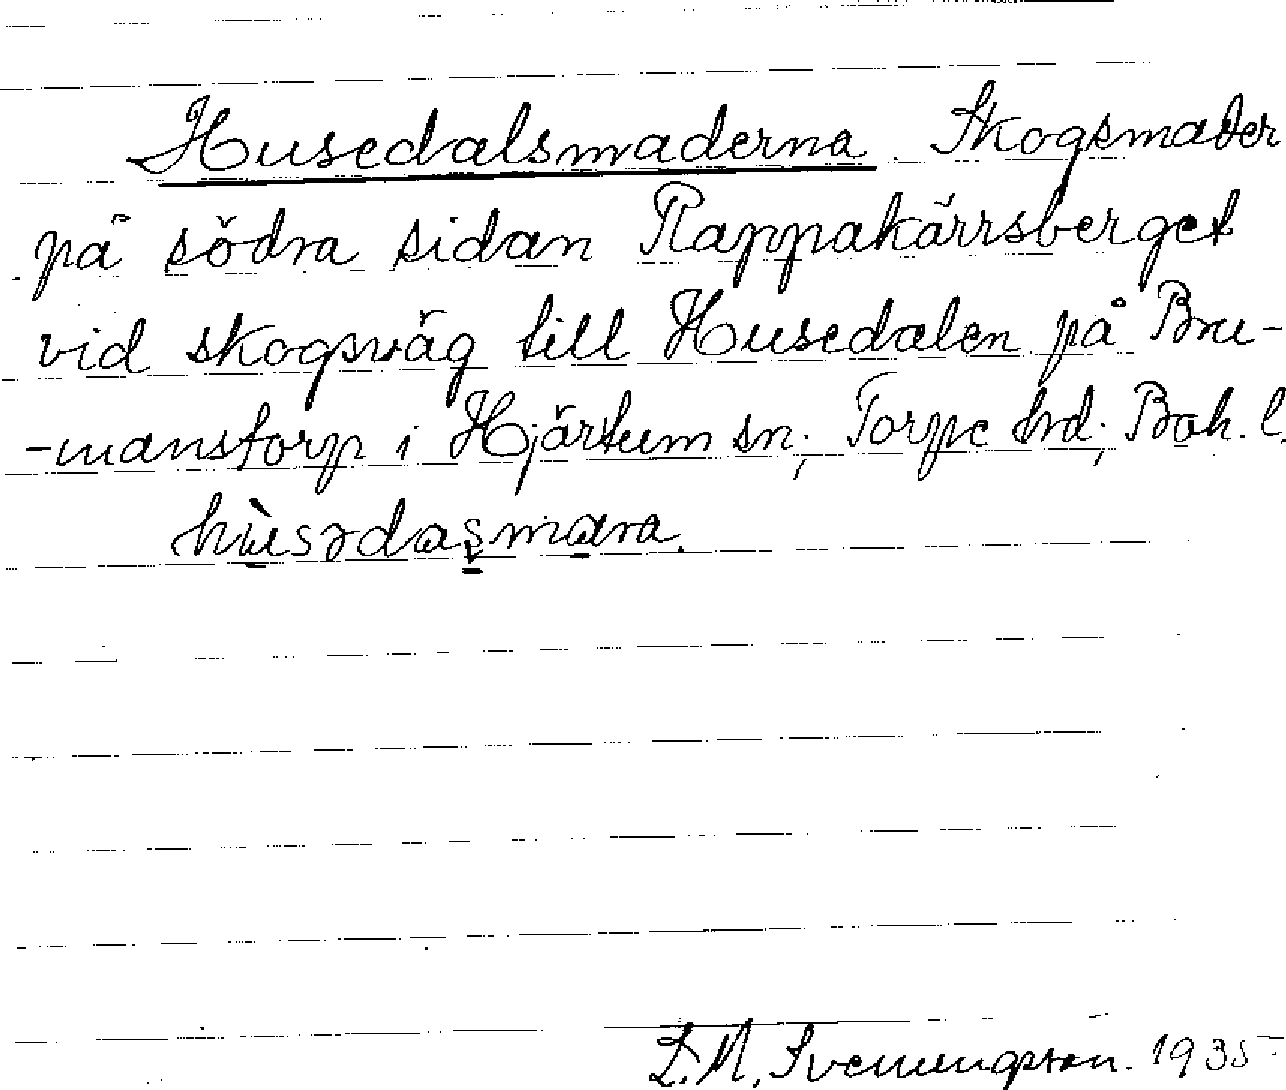 Husedalsmaderna. Skogsmader
på södra sidan Rappakärrsberget
vid skogsväg till Husedalen på Bru-
-manstorp i Hjärtum sn; Torpe hd; Boh. l.
hùsədasmara.
L.M. Svenungsson. 1935